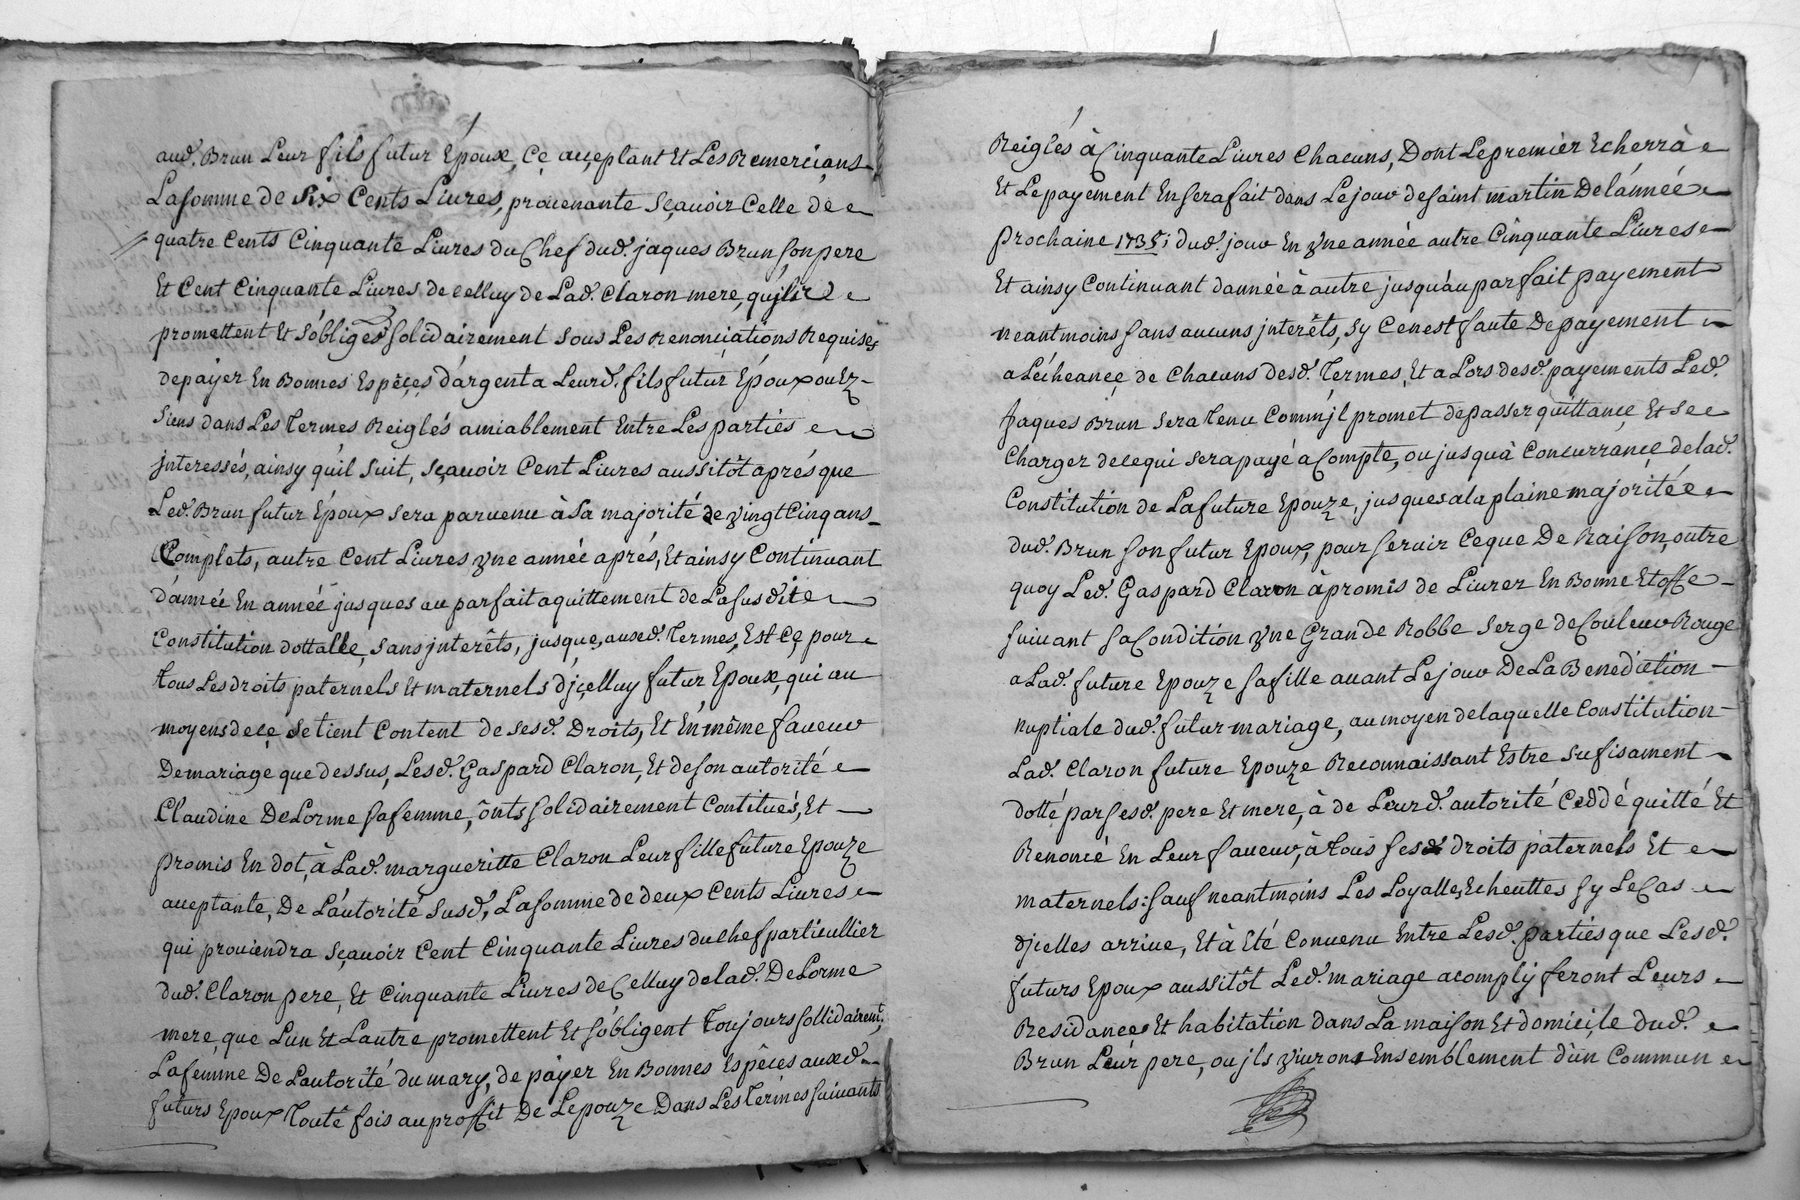 aud. Brun Leur fils futur Epoux, Ce acceptant Et Les Remercians
La somme de Six Cents Livres, provenante Sçavoir Celle de
quatre Cents Cinquante Livres du Chef dud. jaques Brun son pere
Et Cent Cinquante Livres de celluy de Lad. Claron mere, qu'ils
promettent Et s'obliges solidairement sous Les Renonciations Requises
de payer En Bonnes Espéçes d'argent a Leurd. fils futur Epoux ou Ez
Siens dans Les Termes Reiglés amiablement Entre Les parties
jnteressés, ainsy qu'il suit, sçavoir Cent Livres aussitôt aprés que
Led. Brun futur Epoux sera parvenu à Sa majorité de vingt Cinq ans
Complets, autre Cent Livres vne année aprés, Et ainsy Continuant
d'année En année jusques au parfait aquittement de La susdite
Constitution dottalle, sans jnterêts, jusque, ausd. Termes, Est Ce pour
tous Les droits paternels Et maternels djcelluy futur Epoux, qui au
moyens de ce se tient Content de sesd. Droits, Et En même faveur
De mariage que dessus, Lesd. Gaspard Claron, Et de son autorité
Claudine DeLorme sa femme, ônts solidairement Contitués, Et
promis En dot, à Lad. margueritte Claron Leur fille future Epouze
aceptante, De L'autorité susd, La somme de deux Cents Livres
qui proviendra sçavoir Cent Cinquante Livres du chef particullier
dud. Claron pere, Et Cinquante Livres de Celluy delad. DeLorme
mere, que L'un Et L'autre promettent Et s'obligent Toujours sollidairemt,
La femme De L'autorité du mary, de payer En Bonnes Espêces auxd.
futurs Epoux Toute fois au proffit De Lepouze Dans Les Termes suivants
Reiglés à Cinquante Livres Chacuns, Dont Le premier Echerrà
Et Le payement En sera fait dans Le jour de saint martin De L'année
prochaine 1735; dud. jour En vne année autre Cinquante Livres
Et ainsy Continuant dannée à autre jusqu'au parfait payement
neantmoins sans aucuns jnterêts, sy Ce n'est faute De payement
a L'écheançe de Chacuns desd. Termes, Et a Lors desd. payements Led.
Jaques Brun sera Tenu Comm'jl promet de passer quittançe Et se
Charger de ce qui sera payé a Compte, ou jusqu'à Concurrançe delad.
Constitution de La future Epouze, jusques a la plaine majoritée
dud. Brun son futur Epoux, pour servir Ce que De Raison, outre
quoy Led. Gaspard Claron à promis de Livrer En Bonne Etoffe
suivant sa Condition vne Grande Robbe Serge de Couleur Rouge
a Lad. future Epouze sa fille avant Le jour De La Benediction
nuptiale dud. futur mariage, au moyen de laquelle Constitution
Lad. Claron future Epouze Reconnaissant Estre sufisament
dotté par sesd. pere Et mere, à de Leurd. autorité Ceddé quitté Et
Renoncé En Leur faveur, à Tous sesd. droits paternels Et
maternels: sauf neantmoins Les Loyalles Echeuttes sy Le Cas
djcelles arrive, Et à Eté Convenu Entre Lesd. parties que Lesd.
futurs Epoux aussitôt Led. mariage acomply feront Leurs
Residances Et habitation dans La maison Et domicile dud.
Brun Leur pere, ou jls vivront Ensemblement d'un Commun